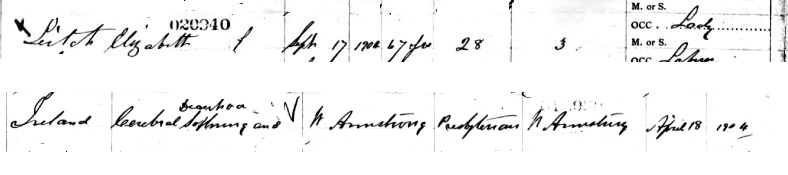 M. or S.
020940
Leitch Elizabeth f Sept 17 1904 67 yrs 28 3 OCC. Lady
M. or S.
OCC Labrer
Diarrhoea
Ireland Cerebral Softning and W Armstrong Presbyterian W Armstrong April 18 1904